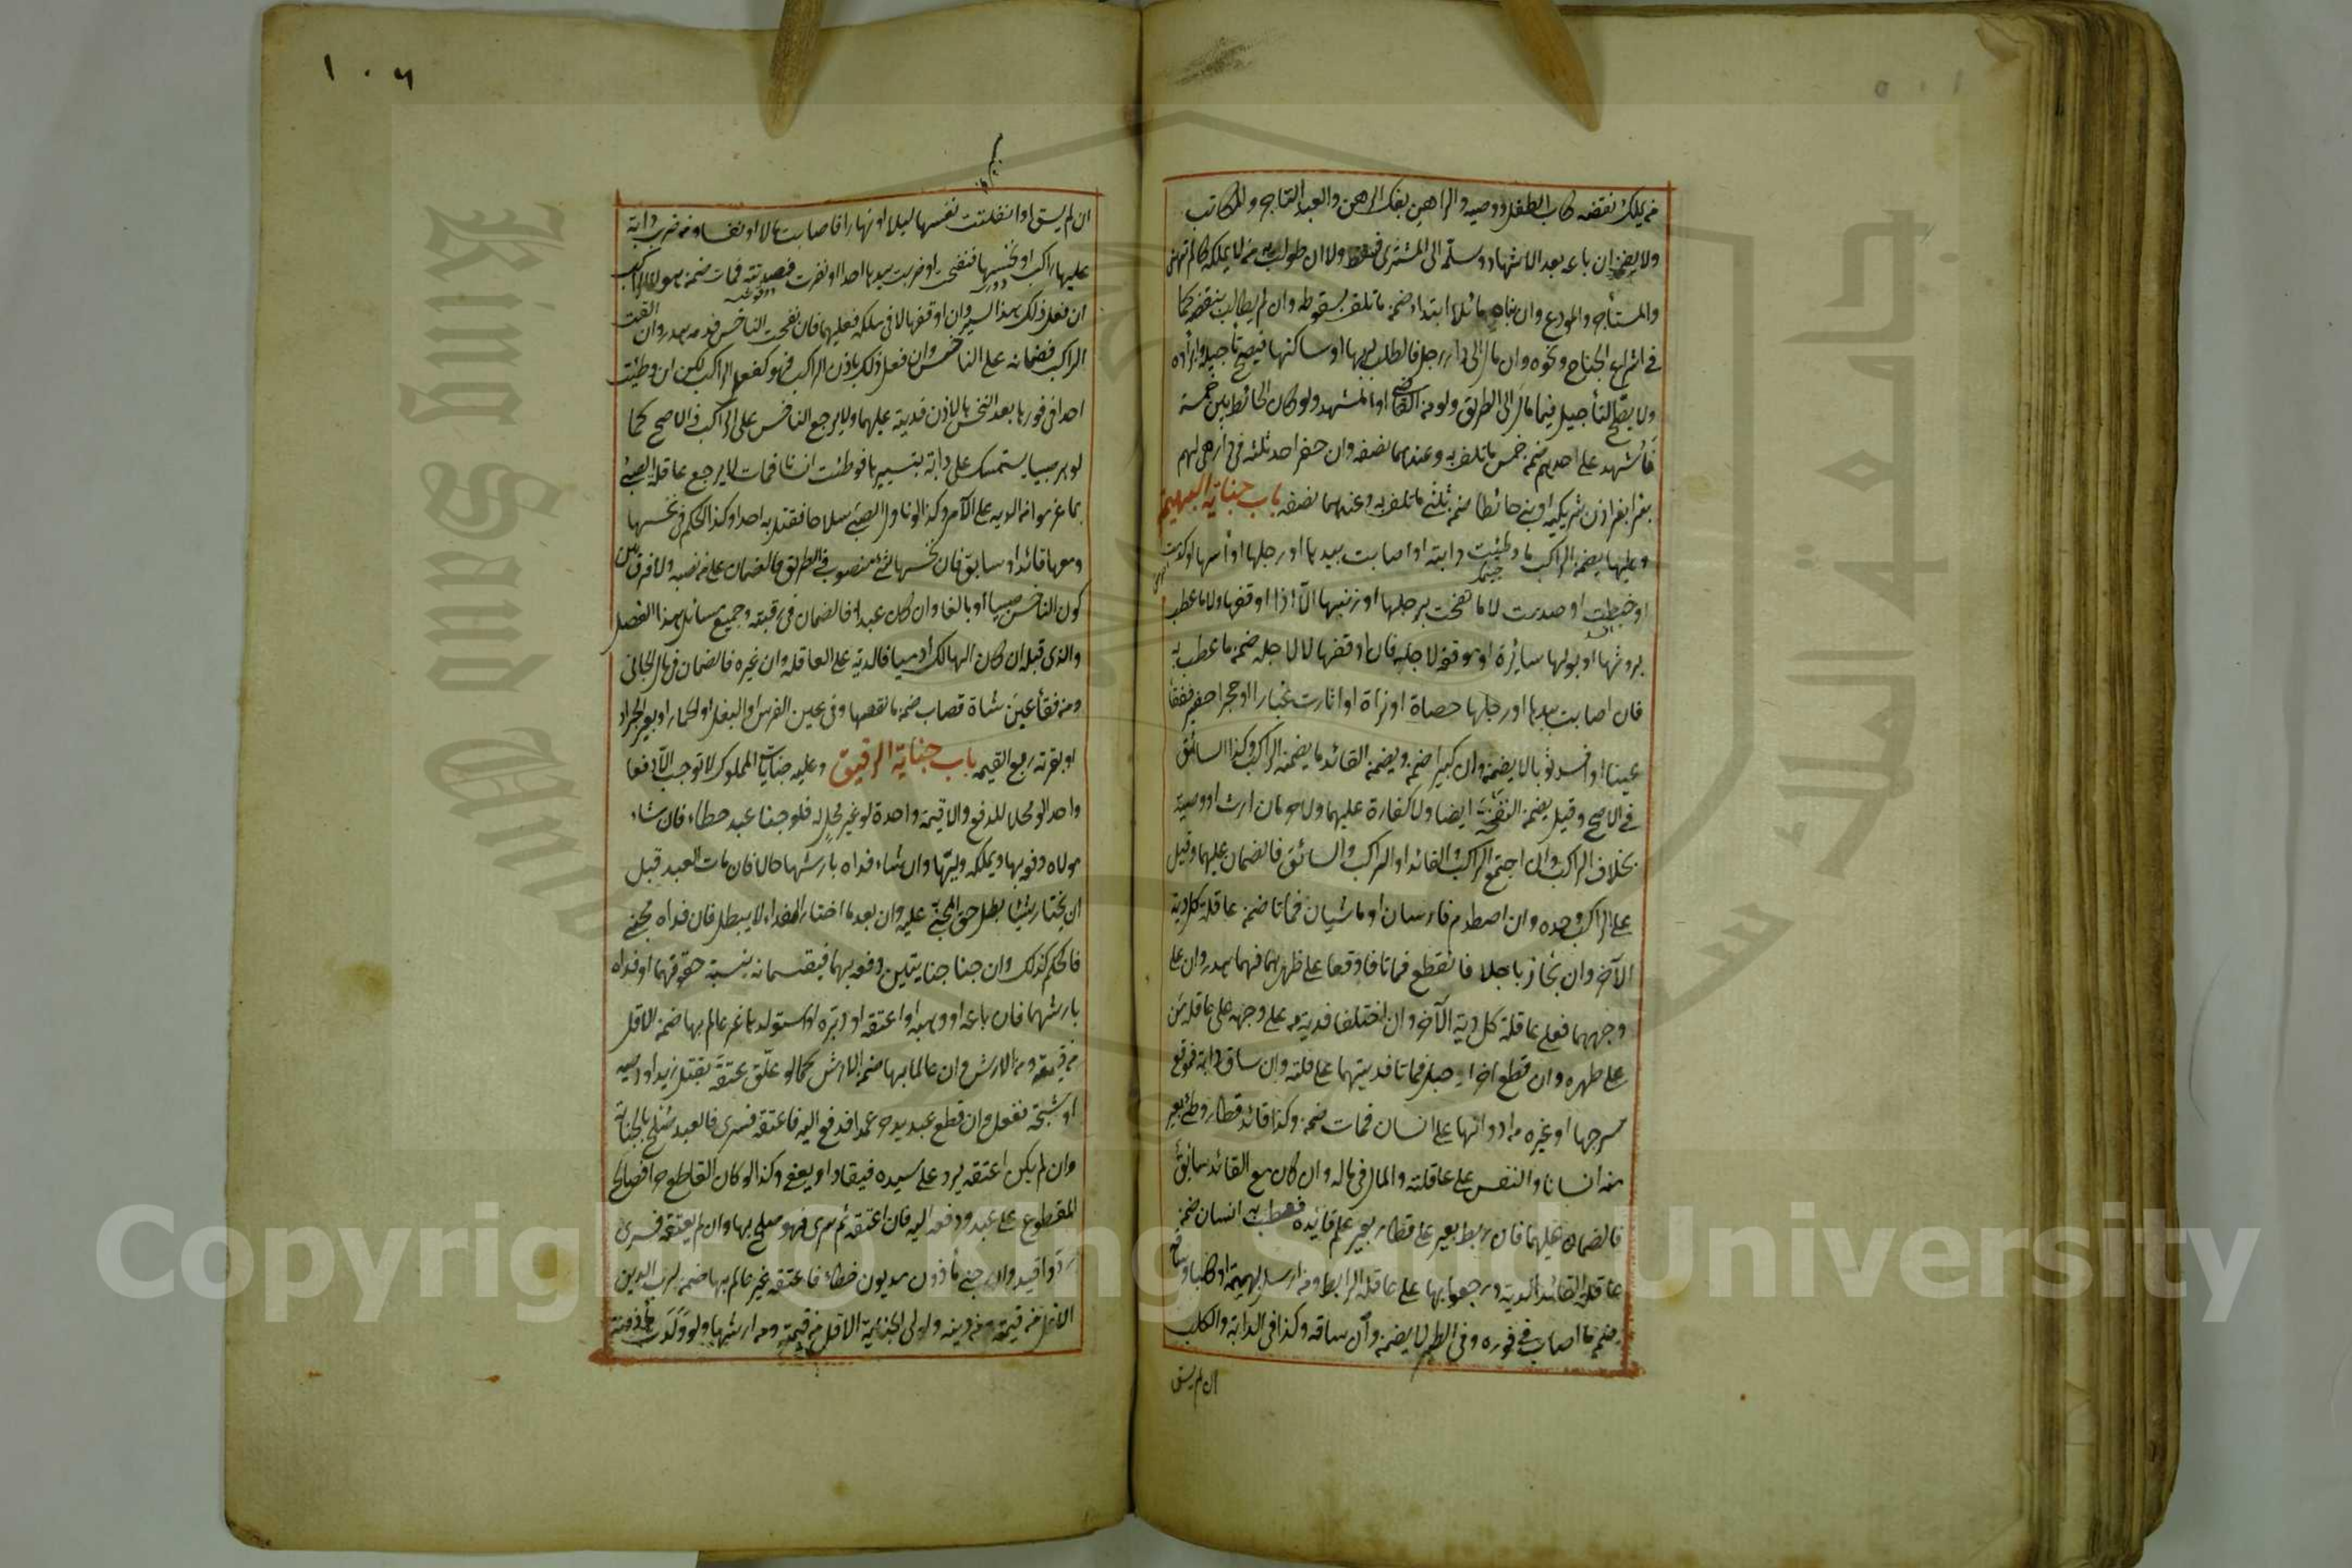 من يملك نقضه كاب الطفل ووصيه والراهن بفك الرهن والعبد التاجر والمكاتب
ولا يضمن ان باعه بعد الاشهاد وسلمه الى المشترى فسقط ولا ان طولب به من لا يملكه كالمرتهن
والمستأجر والمودع وان بناه مائلا ابتداء ضمن ما تلف بسقوطه وان لم يطالب بنقضه كما
في اشراع الجناح ونحوه وان مال الى دار رجل فالطلب لربها او ساكنها فيصح تأجيله وابراءه
ولا يصح التأجيل فيما مال الى الطريق ولو من القاضي او المشهد ولو كان الحائط بين خمسة
فاشهد على احدهم ضمن خمس ما تلف به وعندهما نصفه وان حفر احد ثلثة في دار هي لهم
بئرا بغير اذن شريكيه او بنى حائطا ضمن ثلثي ما تلف به وعندهما نصفه باب جناية البهيمة
وعليها يضمن الراكب ما وطئت دابته او اصابت بيدها او رجلها او رأسها او كدمت
او خبطت او صدمت لا ما نفحت برجلها او ذنبها الا اذا اوقفها ولا ما عطب
بروثها او بولها سائرة او موقفة لاجله فان اوقفها لا لاجله ضمن ما عطب به
فان اصابت بيدها او رجلها حصاة او نواة او اثارت غبارا او حجرا صغيرا ففقأ
عينا او افسد ثوبا لا يضمن وان كبيرا ضمن ويضمن القائد ما يضمنه الراكب وكذا السائق
في الاصح وقيل يضمن النفحة ايضا ولا كفارة عليهما ولا حرمان ارث او وصية
بخلاف الراكب وان اجتمع الراكب والقائد او الراكب والسائق فالضمان عليهما وقيل
على الراكب وحده وان اصطدم فارسان او ماشيان فماتا ضمن عاقلة كل دية
الآخر وان تجاذبا حبلا فانقطع فماتا فان وقعا على ظهرهما فهما هدر وان على
وجههما فعلى عاقلة كل دية الآخر وان اختلفا فدية من على وجهه على عاقلة من
على ظهره وان قطع آخر الحبل فماتا فديتهما على عاقلته وان ساق دابة فوقع
سرجها او غيره من ادواتها على انسان فمات ضمن وكذا قائد قطار وطئ بعير
منه انسانا والنفس على عاقلته والمال في ماله وان كان مع القائد سائق
فالضمان عليهما فان ربط بعير على قطار بغير علم قائده فعطب به انسان ضمن
عاقلة القائد الدية ورجعوا بها على عاقلة الرابط ومن ارسل بهيمة او كلبا وساقه
ضمن ما اصاب في فوره وفي الطير لا يضمن وان ساقه وكذا في الدابة والكلب
ان لم يسق
١٠٦
ان لم يسق او انفلتت نفسها ليلا او نهارا فاصابت مالا او نفسا ومن ضرب دابة
عليها راكب او نخسها فنفحت او ضربت بيدها احدا او نفرت فصدمته فمات ضمن هو لا الراكب
ان فعل ذلك هذا السير وان اوقفها لا في ملكه فعليهما فان نفحت الناخس فدمه هدر وان القت
الراكب فضمانه على الناخس وان فعل ذلك باذن الراكب فهو كفعل الراكب لكن ان وطئت
احدا في فورها بعد النخس بالاذن فديته عليهما ولا يرجع الناخس على الراكب في الاصح كما
لو امر صبيا يستمسك على دابة بتسييرها فوطئت انسانا فمات لا يرجع عاقلة الصبي
بما غرموا من الدية على الآمر وكذا لو ناول الصبي سلاحا فقتل به احدا وكذا الحكم في نخسها
ومعها قائد او سائق فان نخسها شيء منصوب في الطريق فالضمان على من نصبه ولا فرق بين
كون الناخس صبيا او بالغا وان كان عبدا فالضمان في رقبته وجميع مسائل هذا الفصل
والذي قبله ان كان الهالك آدميا فالدية على العاقلة وان غيره فالضمان في مال الجاني
ومن فقأ عين شاة قصاب ضمن ما نقصها وفي عين الفرس او البغل او الحمار او بعير الجزار
او بقرته ربع القيمة باب جناية الرقيق وعليه جنايات المملوك لا توجب الا دفعا
واحدا لو محلا للدفع والا قيمة واحدة لو غير محل له فلو جنا عبد خطاء فان شاء
مولاه دفعه بها ويملكه وليها وان شاء فداه بارشها حالا فان مات العبد قبل
ان يختار شيئا بطل حق المجني عليه وان بعد ما اختار الفداء لا يبطل فان فداه فجنى
فالحكم كذلك وان جنا جنايتين دفعه بهما فيقتسمانه بنسبة حقوقهما او فداه
بارشهما فان باعه او وهبه او اعتقه او دبره او استولدها غير عالم بها ضمن الاقل
من قيمته ومن الارش وان عالما بها ضمن الارش كما لو علق عتقه بقتل زيد او رميه
او شجه ففعل وان قطع عبد يد حر عمدا فدفع اليه فاعتقه فسرى فالعبد صلح بالجناية
وان لم يكن اعتقه يرد على سيده فيقاد او يعفى وكذا لو كان القاطع حرا فصالح
المقطوع على عبد ودفعه اليه فان اعتقه ثم سرى فهو صلح بها وان لم يعتقه فسرى
رد واقيد وان جنى مأذون مديون خطاء فاعتقه غير عالم بها ضمن لرب الدين
الاقل من قيمته ومن دينه ولولي الجناية الاقل من قيمته ومن ارشها ولو ولدت مأذونة